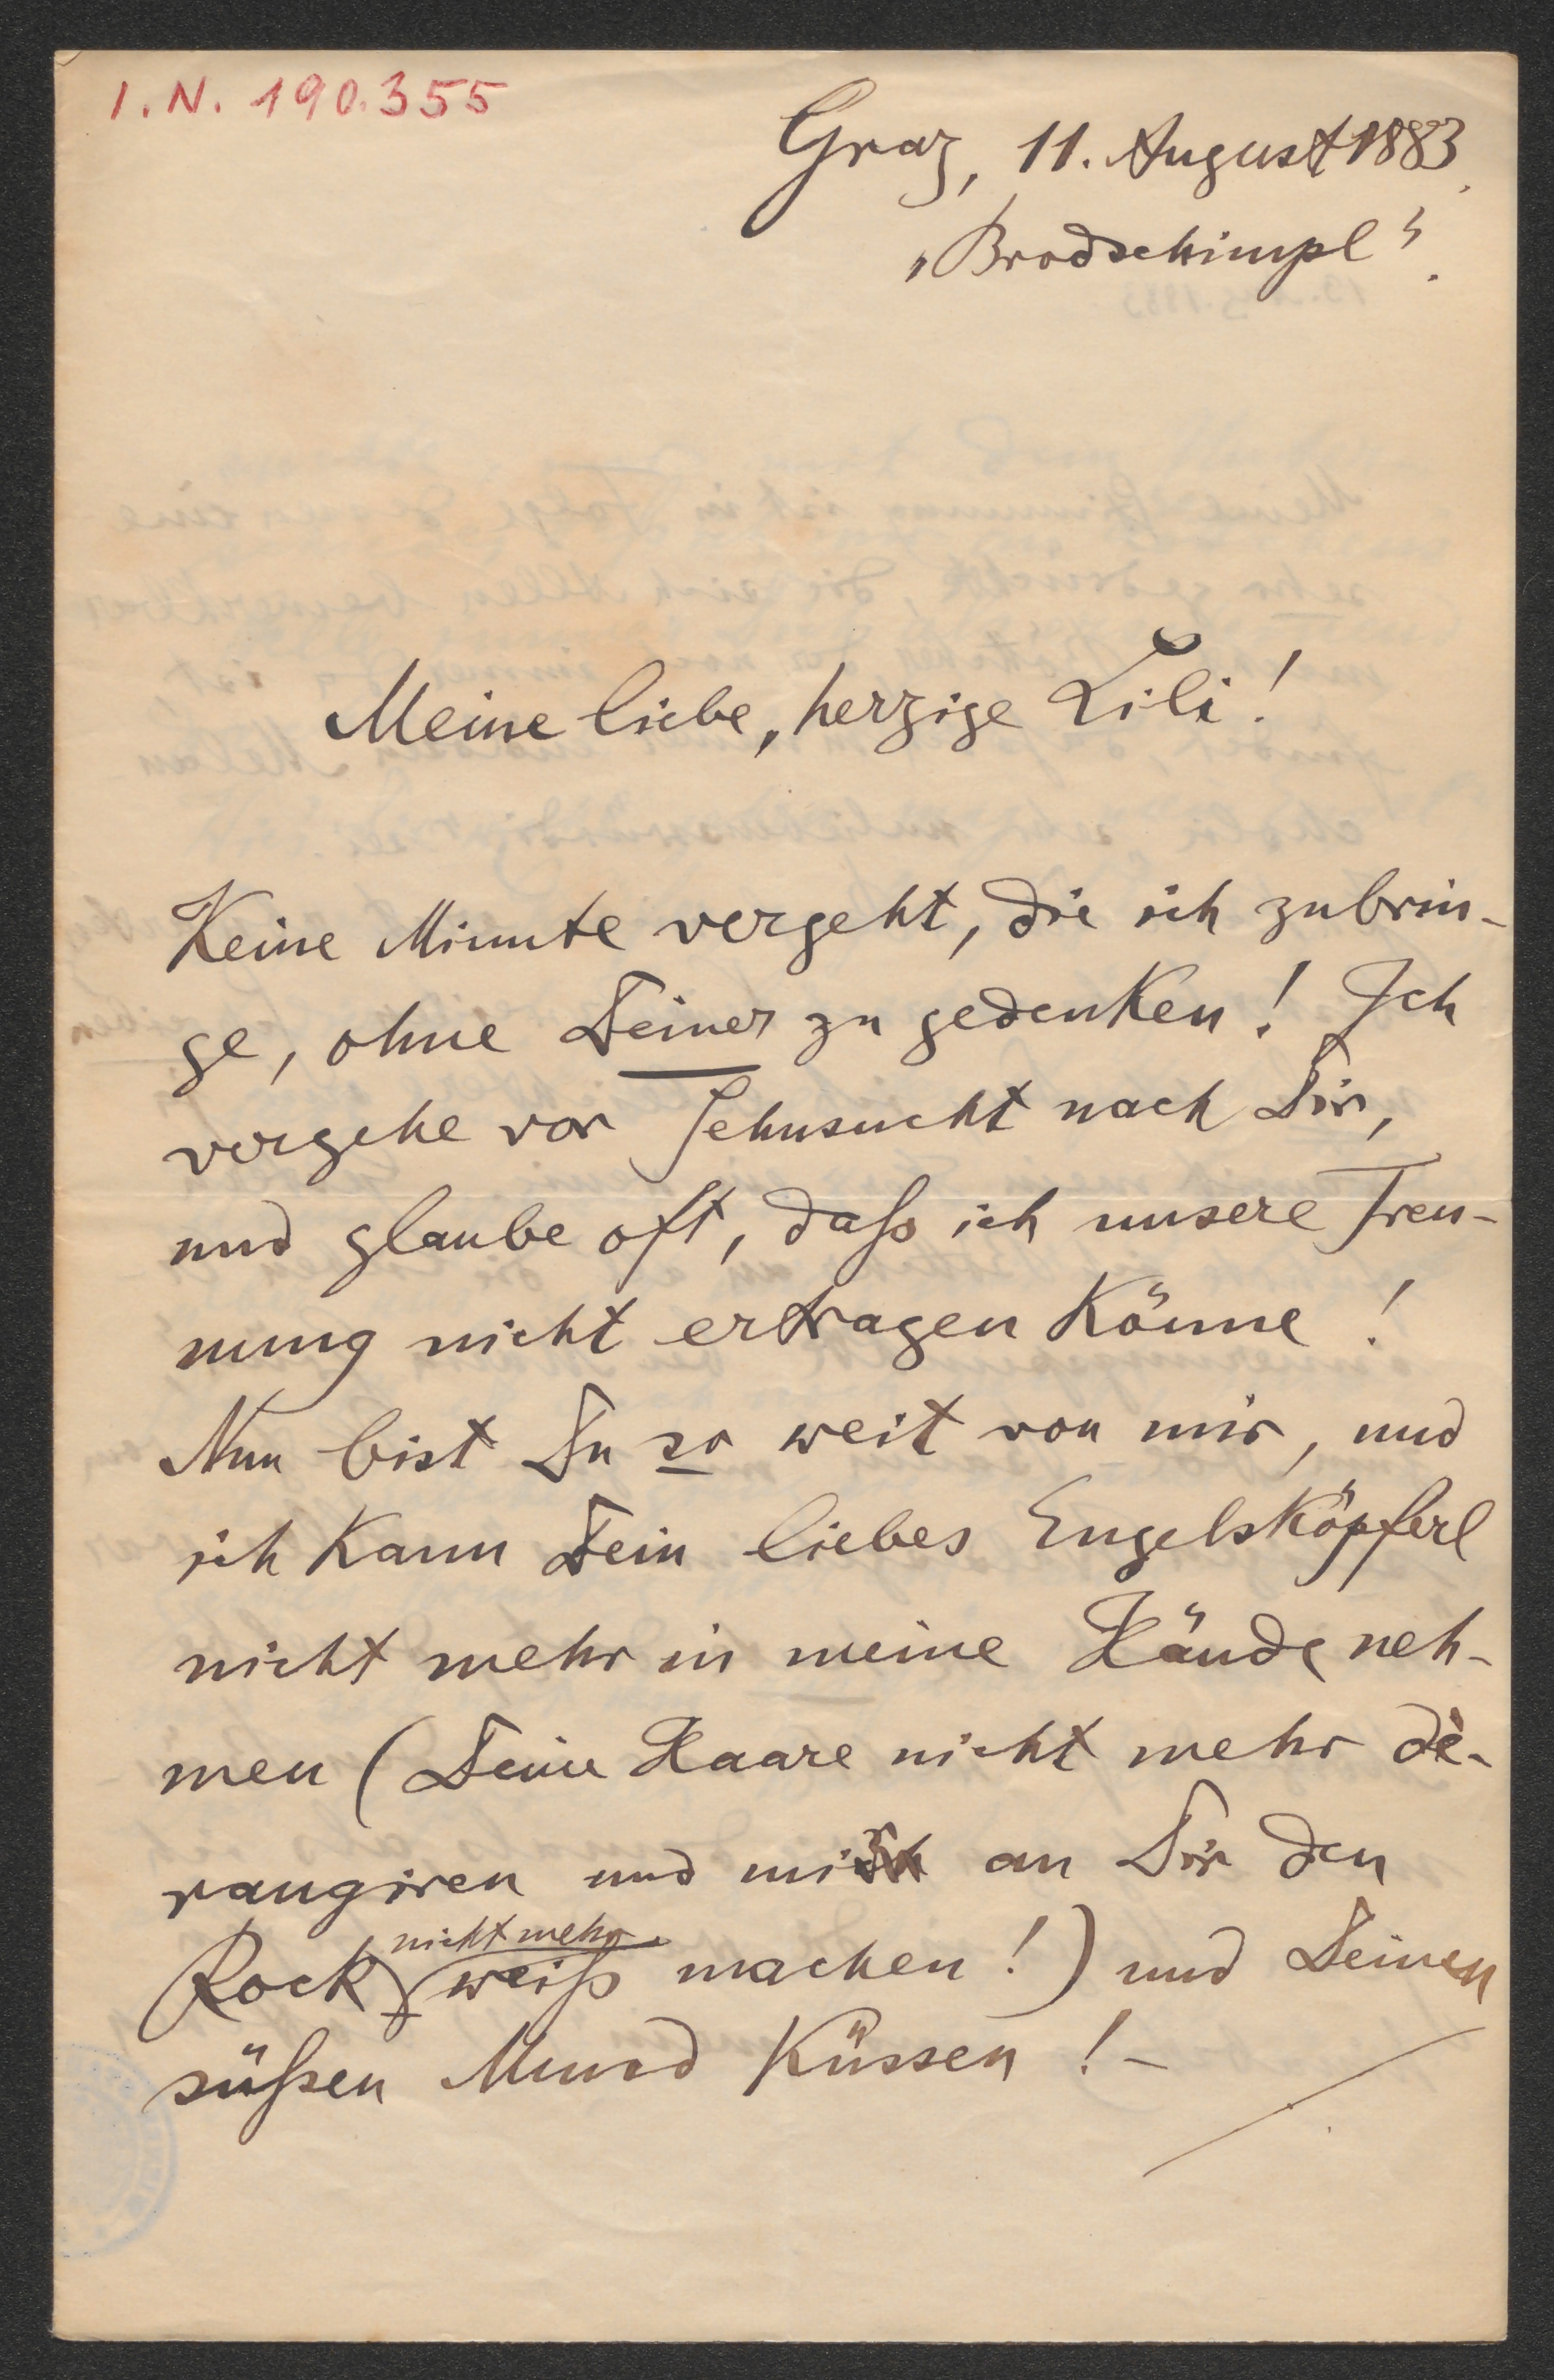 I.N. 190.355
Graz, 11. August 1883.
„Brodschimpl“.
Meine liebe, herzige Lili!
Keine Minute vergeht, die ich zubrin-
ge, ohne Deiner zu gedenken! Ich
vergehe vor Sehnsucht nach Dir,
und glaube oft, daß ich unsere Tren-
nung nicht ertragen könne!
Nun bist Du so weit von mir, und
ich kann Dein liebes Engelsköpferl
nicht mehr in meine Hände neh-
men (Deine Haare nicht mehr dè-
rangiren und mir an Dir den
nicht mehr
Rock weiß machen!) und Deinen
süßen Mund küssen! –